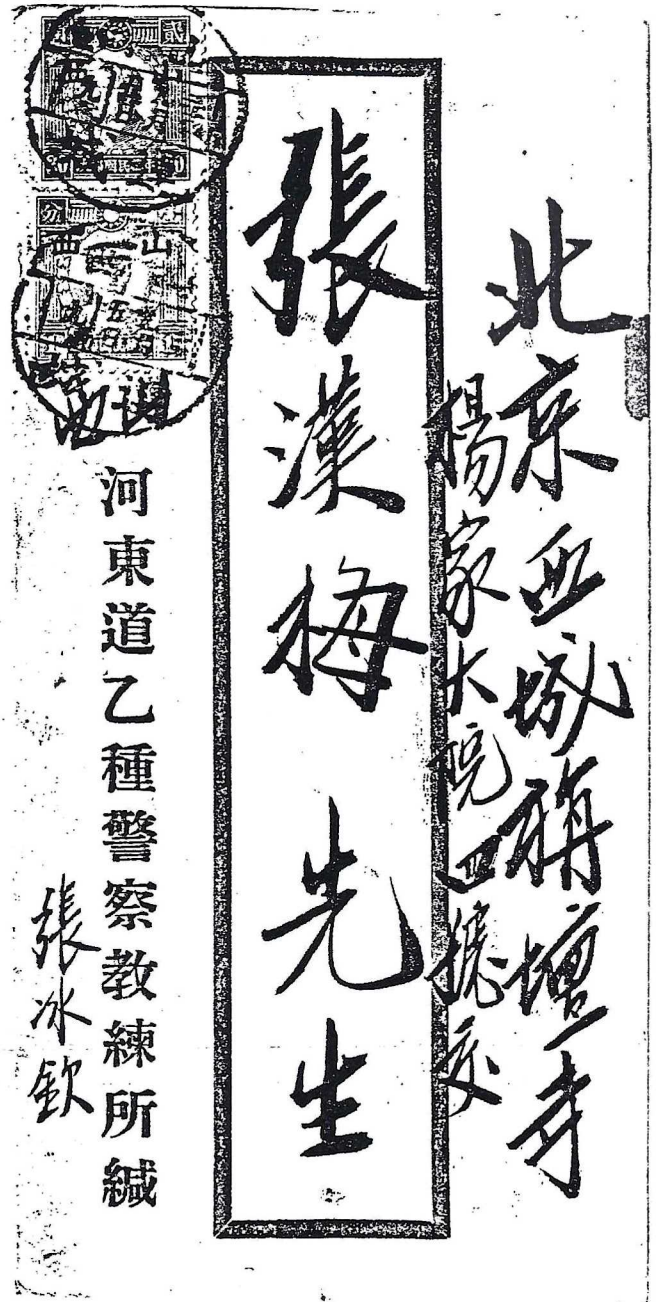 北京西城旃壇寺
楊家大院四號交
張漢梅先生
河東道乙種警察教練所緘
張冰欽
山西